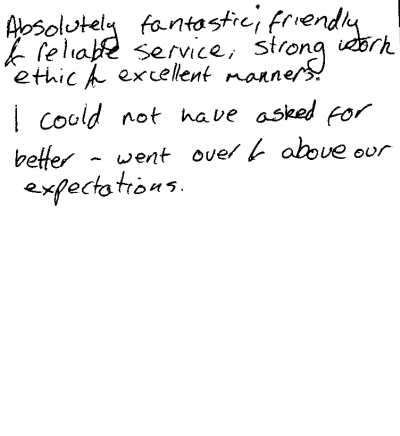 Absolutely fantastic, friendly
& reliable service, strong work
ethic & excellent manners.
I could not have asked for
better - went over & above our
expectations.